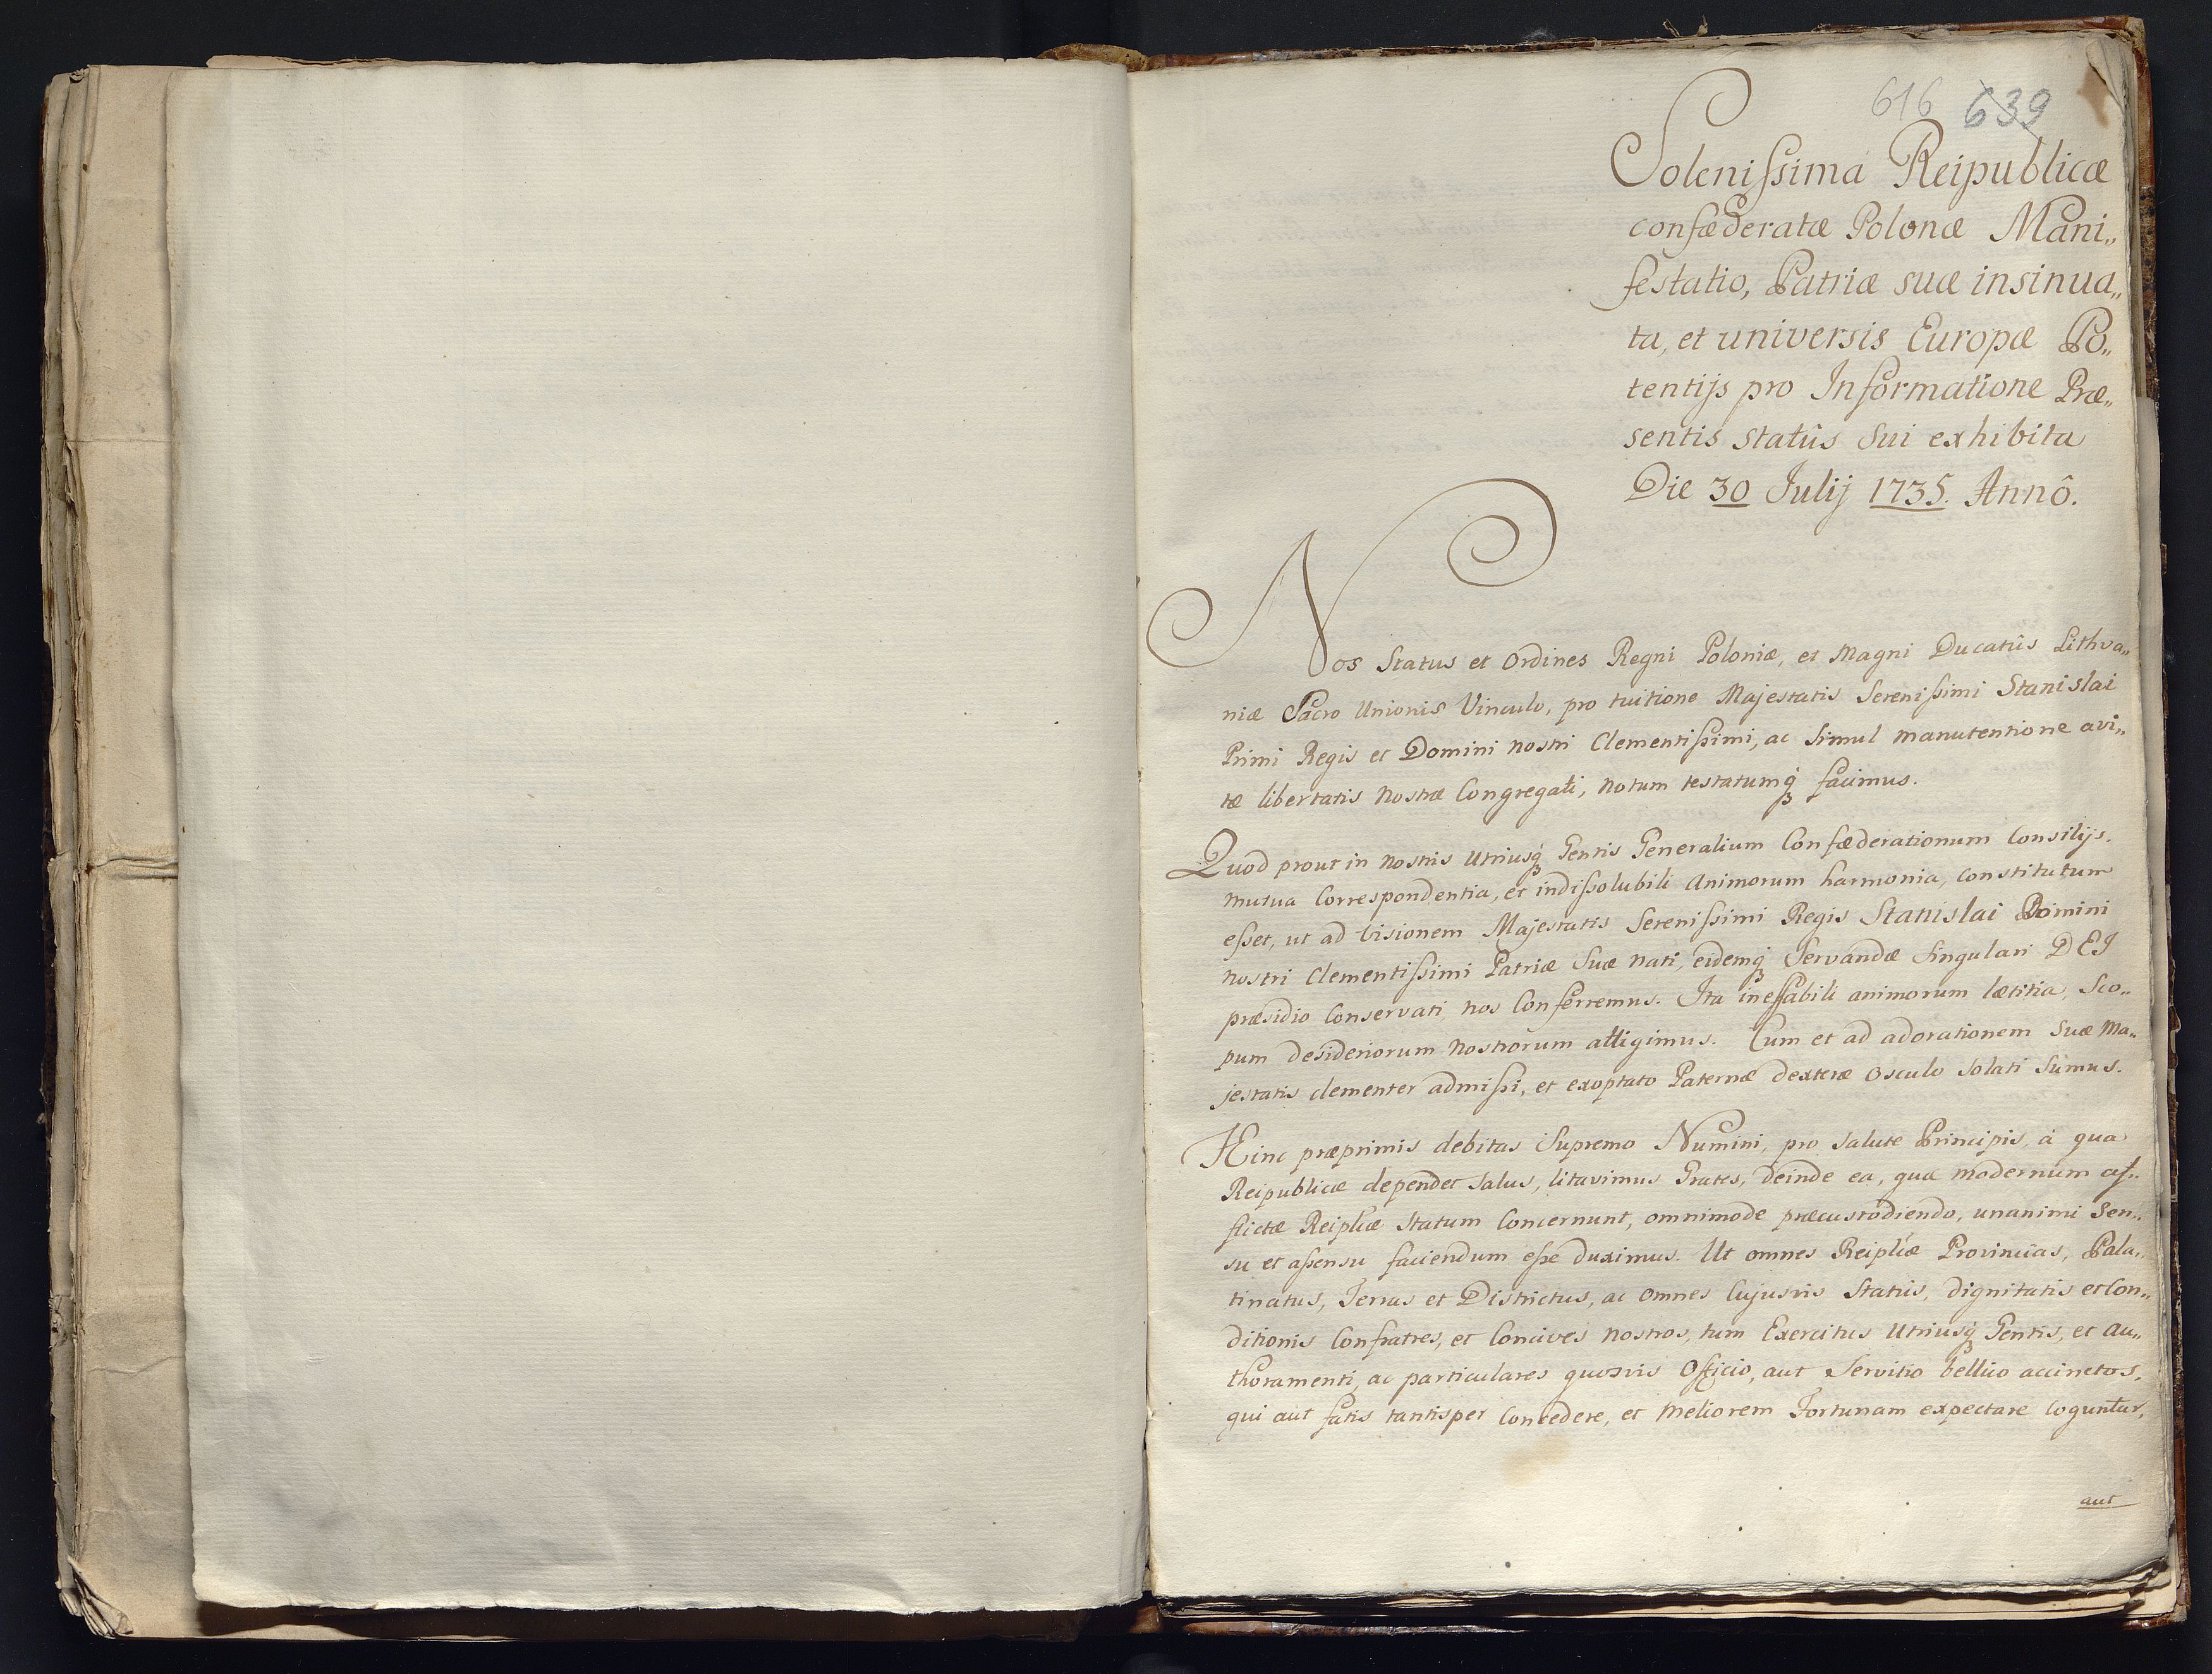 616 639
Solenissima Reipublicæ
confæderatæ Polonæ Mani„
festatio, Patriæ suæ insinua„
ta, et universis Europæ Po„
tentijs pro Informatione Præ„
sentis statûs sui exhibita
Die 30 Julij 1735. Annô.
Nos Status et Ordines Regni Poloniæ, et Magni Ducatûs Lithva„
niæ Sacro Unionis Vinculo, pro tuitione Majestatis Serenissimi Stanislai
Primi Regis et Domini nostri Clementissimi, ac simul manutentione avi„
tæ libertatis Nostræ Congregati, notum testatumq facimus.
Quod prout in nostris Utriusq Gentis Generalium Confæderationum Consilijs.
mutua Correspondentia, et indissolubili Animorum harmonia, constitutum
esset, ut ad Visionem Majestatis Serenissimi Regis Stanislai Domini
nostri Clementissimi Patriæ suæ nati, eidemq Servandæ singulari DEI
præsidio Conservati nos Conferremus. Ita ineffabili animorum lætitia, Sco„
pum desideriorum nostrorum attigimus. Cum et ad adorationem suæ Ma„
jestatis clementer admissi, et exoptato Paternæ dexteræ osculo solati sumus.
Hinc præprimis debitas Supremo Numini, pro salute Principis, à qua
Reipublicæ dependet salus, litavimus Grates, deinde ea, quæ modernum af„
flictæ Reiplicæ statum Concernunt, omnimode præcustodiendo, unanimi sen„
su et assensu faciendum esse duximus. Ut omnes Reiplicæ Provincias, Pala„
tinatus, Terras et Districtus, ac omnes Cujusvis Statûs, dignitatis et Con„
ditionis Confratres, et Concives nostros, tum Exercitus Utriusq Gentis, et au„
thoramenti, ac particulares quosvis Officio, aut Servitio bellico accinctos,
qui aut fatis tantisper Concedere, et meliorem Fortunam expectare Coguntur,
aut